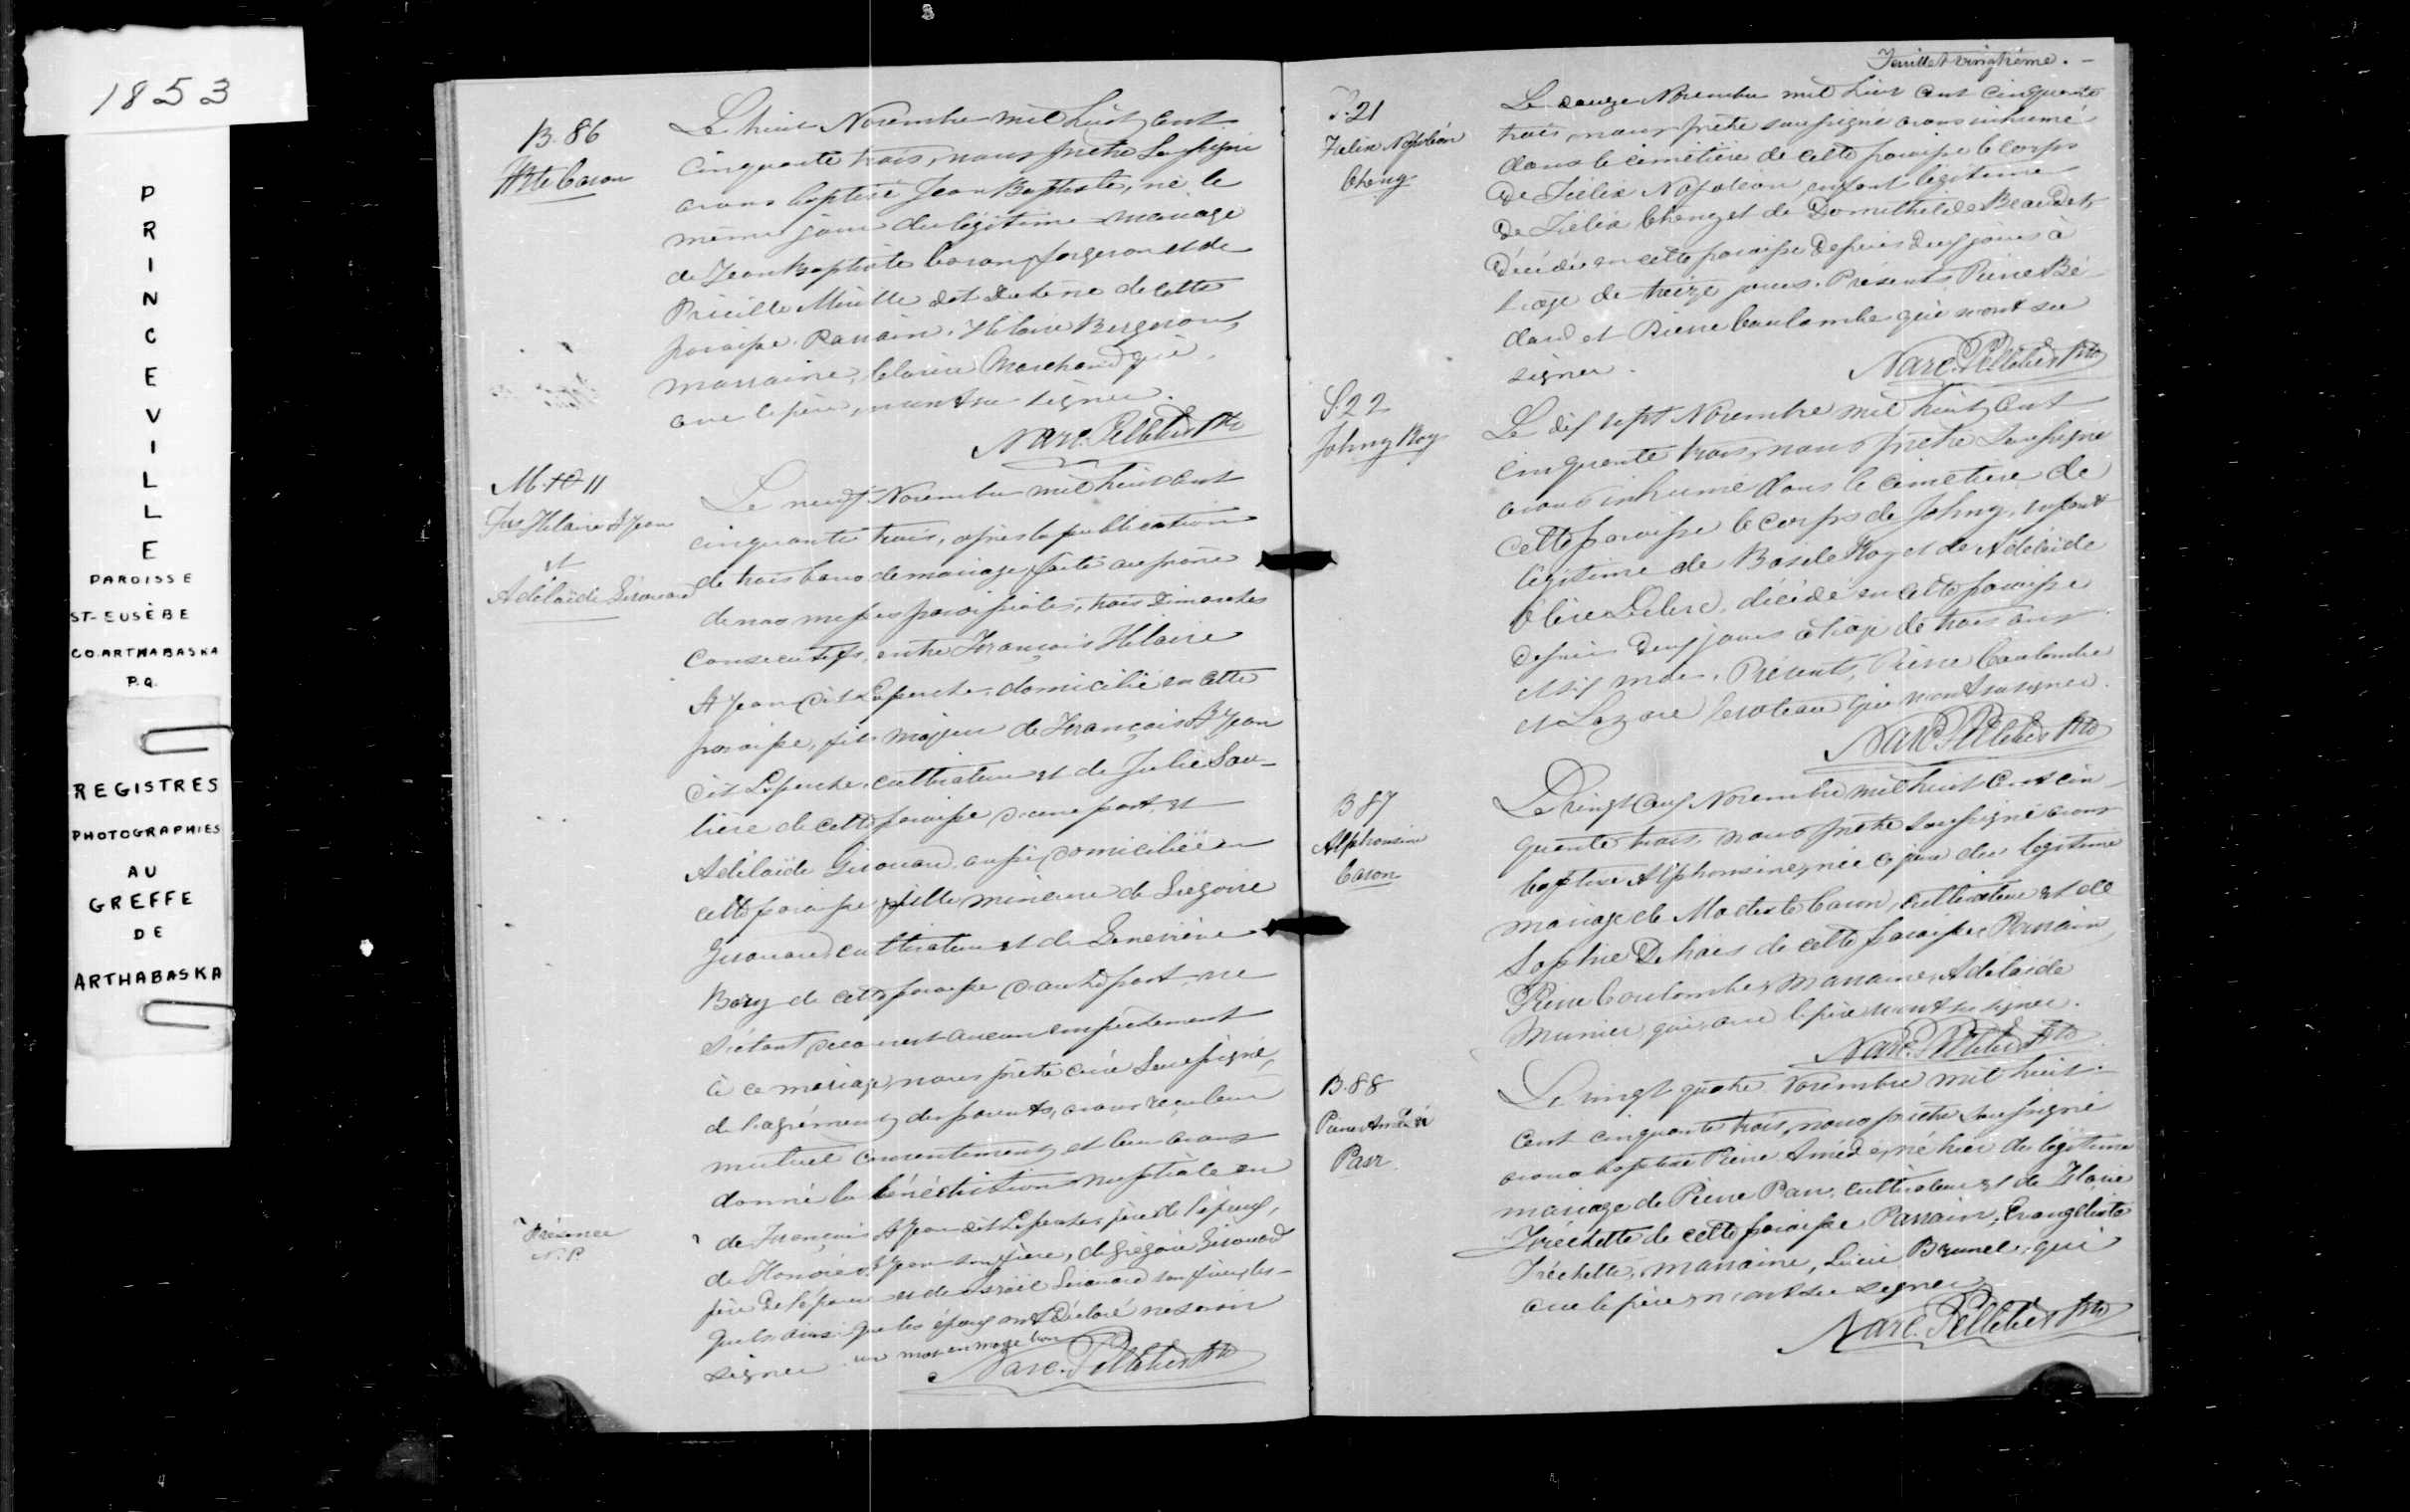 1853
PRINCEVILLE
PAROISSE
ST-EUSÈBE
CO. ARTHABASKA
P.Q.
REGISTRES
PHOTOGRAPHIES
AU
GREFFE
DE
ARTHABASKA
B. 86
JBte Caron
Le huit Novembre mil huit cent
cinquante trois, nous prêtre soussigné
avons baptisé Jean Baptiste, né le
même jour du légitime mariage
de Jean Baptiste Caron, forgeron et de
Pricille Miville dit Duchene de cette
paroisse. Parrain, Hilaire Bergeron,
marraine, Clarice Marchand qui
avec le père, n'ont su signer.
Narc. Pelletier Ptre
M. 10 11
Frs Hilaire St Jean
et
Adélaïde Girouard
Le neuf Novembre mil huit cent
cinquante trois, après la publication
de trois bans de mariage, faite au prône
de nos messes paroissiales, trois dimanches
consecutifs, entre François Hilaire
St Jean dit Laperche, domicilié en cette
paroisse, fils majeur de François St Jean
dit Laperche, cultivateur et de Julie Sou-
lière de cette paroisse d'une part, et
Adélaïde Girouard, aussi domiciliée en
cette paroisse, fille mineure de Grégoire
Girouard cultivateur et de Geneviève
Bary de cette paroisse d'autre part, ne
s'étant découvert aucun empêchement
à ce mariage, nous prêtre curé soussigné,
de l'agrément des parents, avons reçu leur
mutuel consentement et leur avons
donné la bénédiction nuptiale en
présence
N. P.
de François St Jean dit Laperche, père de l'époux,
de Honoré St Jean son frère, de Grégoire Girouard
père de l'épouse et de Israël Girouard son frère, les-
quels ainsi que les époux ont déclaré ne savoir
signer. un mot en marge bon
Narc. Pelletier Ptre
Feuillet vingtième. -
S. 21
Felix Napoléon
Cheny
Le douze Novembre mil huit cent cinquante
trois, nous prêtre soussigné avons inhumé
dans le cimetière de cette paroisse le corps
de Félix Napoléon, enfant légitime
de Félix Cheny et de Domithilde Beaudet,
décédé en cette paroisse depuis deux jours à
l'age de treize jours. Présents, Pierre Bé-
dard et Pierre Coulombe qui n'ont su
signer.
Narc. Pelletier Ptre
S. 22
Johny Roy
Le dix sept Novembre mil huit cent
cinquante trois, nous prêtre soussigné
avons inhumé dans le cimetière de
cette paroisse le corps de Johny, enfant
légitime de Basile Roy et de Adélaïde
Olive Leclerc, décédé en cette paroisse
depuis deux jours à l'age de trois ans
et six mois. Présents, Pierre Coulombe
et Lazare qui n'ont su signer.
Narc. Pelletier Ptre
B 87
Alphonsine
Caron
Le vingt deux Novembre mil huit cent cin-
quante trois, nous prêtre soussigné avons
baptisé Alphonsine, née ce jour du légitime
mariage de Modeste Caron, cultivateur et de
Sophie Dehais de cette paroisse. Parrain,
Pierre Coulombe, marraine, Adelaïde
Munier qui, avec le père n'ont su signer.
Narc. Pelletier Ptre
B. 88
Pierre Amédé
Parr
Le vingt quatre Novembre mil huit
cent cinquante trois, nous prêtre soussigné
avons baptisé Pierre Amédé, né hier du légitime
mariage de Pierre Parr, cultivateur et de Flavie
Fréchette de cette paroisse. Parrain, Evangéliste
Fréchette, marraine, Lucie Brunel, qui
avec le père, n'ont su signer.
Narc. Pelletier Ptre